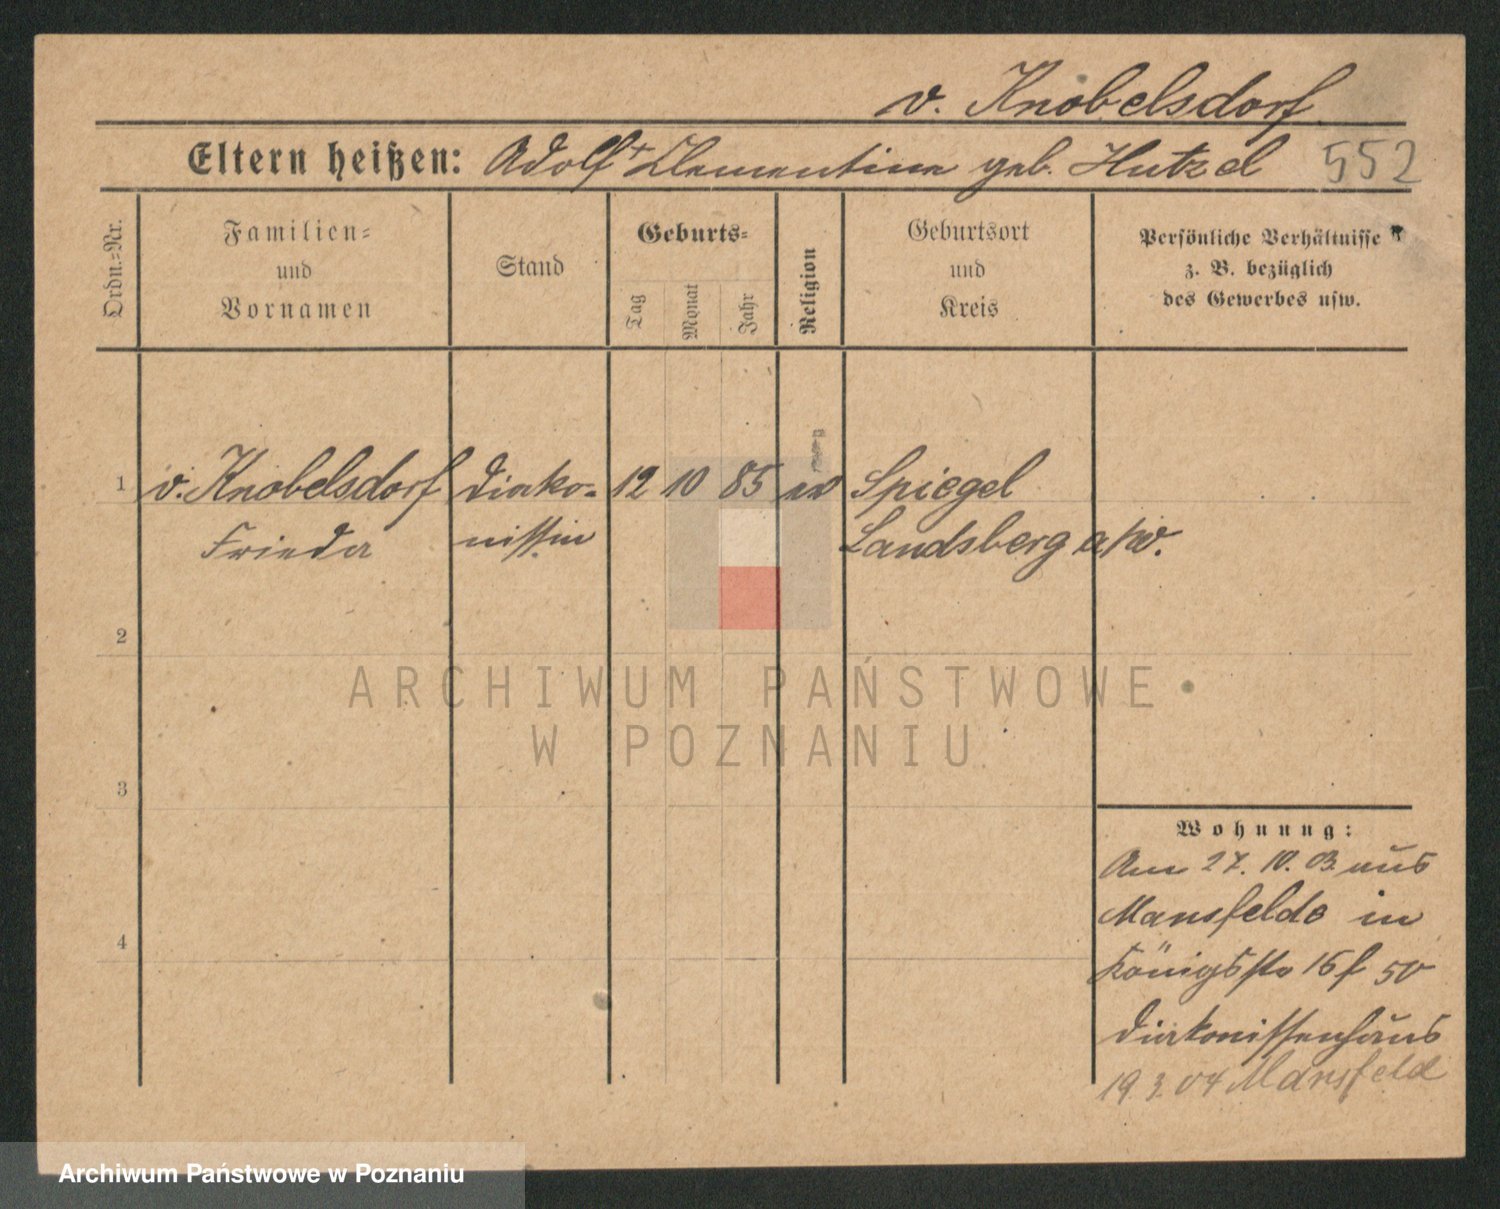 v. Knobelsdorf
Eltern heißen: Adolf + Clementine geb. Hutzel 552
Ordn.-Nr.
Familien-
und
Vornamen
Stand
Geburts-
Tag
Monat
Jahr
Religion
Geburtsort
und
Kreis
Persönliche Verhältnisse
z. B. bezüglich
des Gewerbes usw.
1 v. Knobelsdorf Diako- 12 10 85 ev Spiegel
Frieda nissin Landsberg a/w.
2
3
4
Wohnung:
Am 27. 10. 03. aus
Mansfelde in
Königsstr 16 f 50
Diakonissenhaus
19. 3. 04 Mansfeld
ARCHIWUM PAŃSTWOWE
W POZNANIU
Archiwum Państwowe w Poznaniu